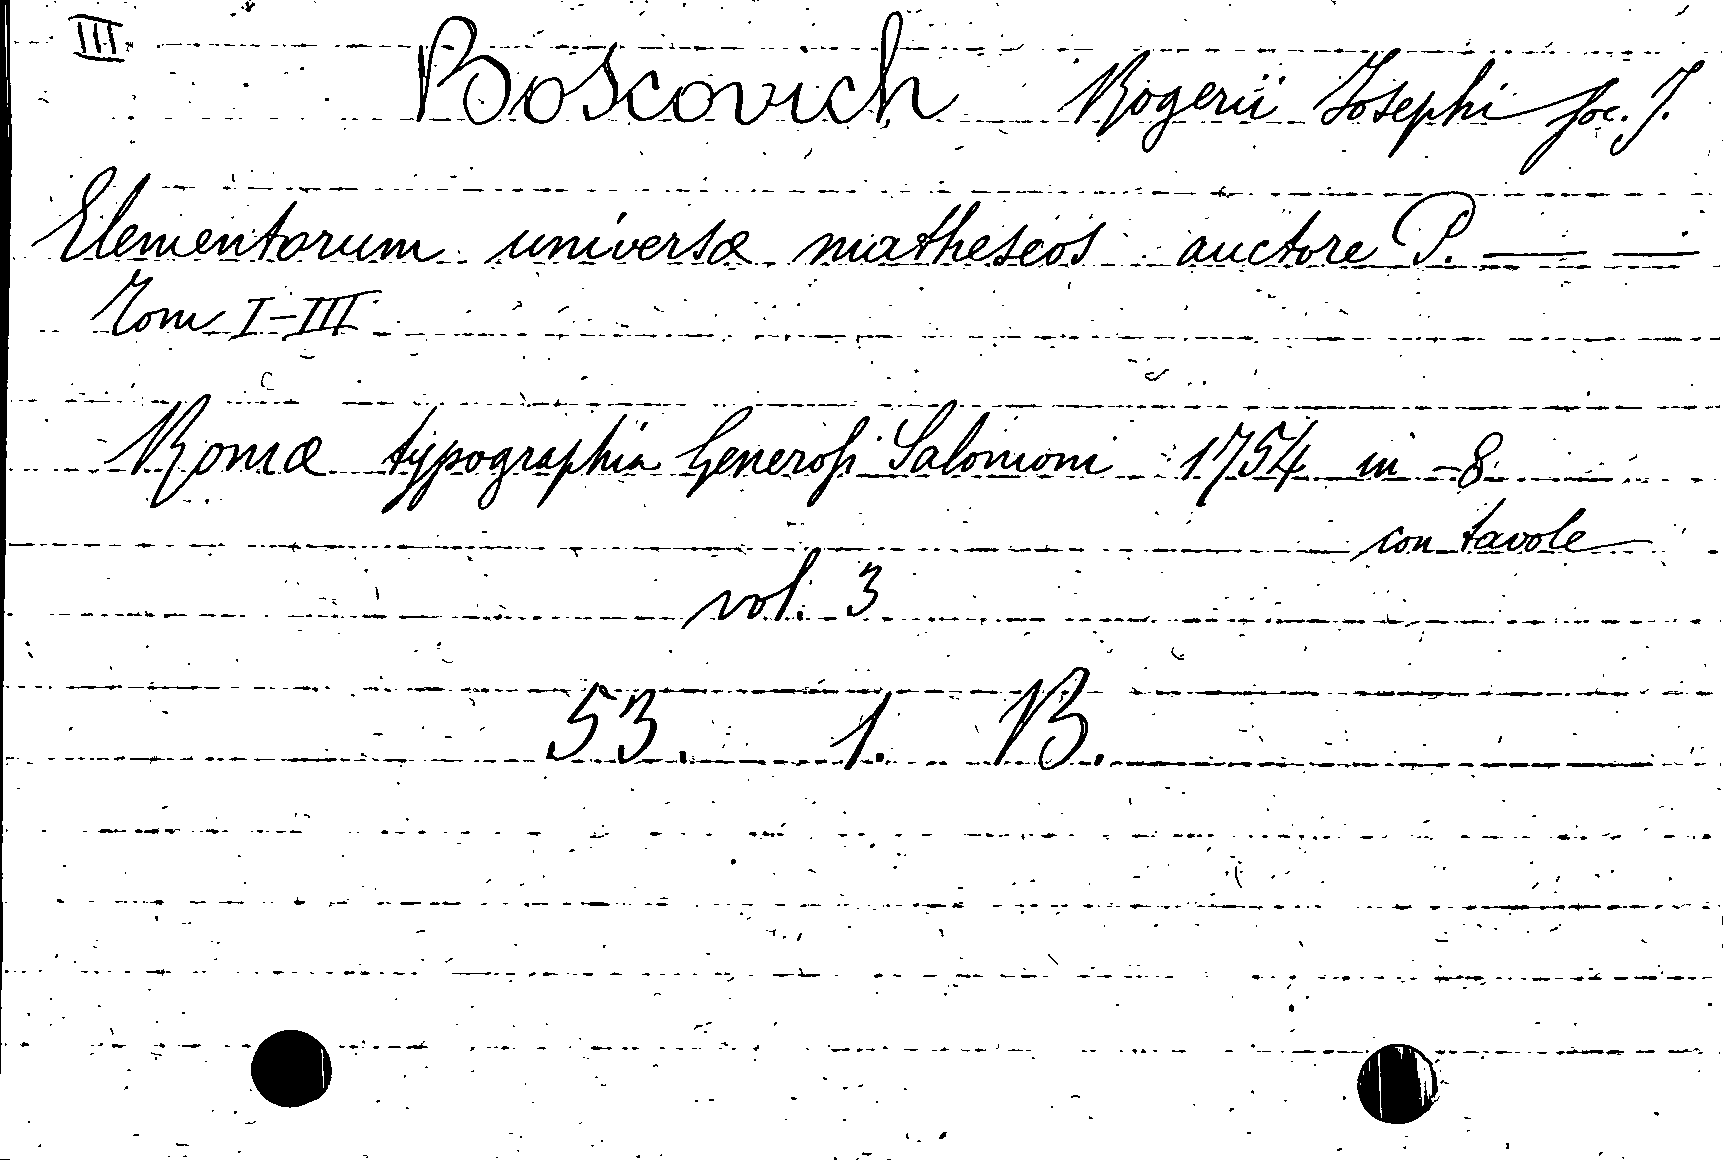 III.
Boscovich Rogerii Josephi soc. J.
Elementorum universæ matheseos auctore P. — —
Tom I-III
Romæ typographia Generosi Salomoni 1754 in -8
con tavole
vol. 3
53. 1. B.